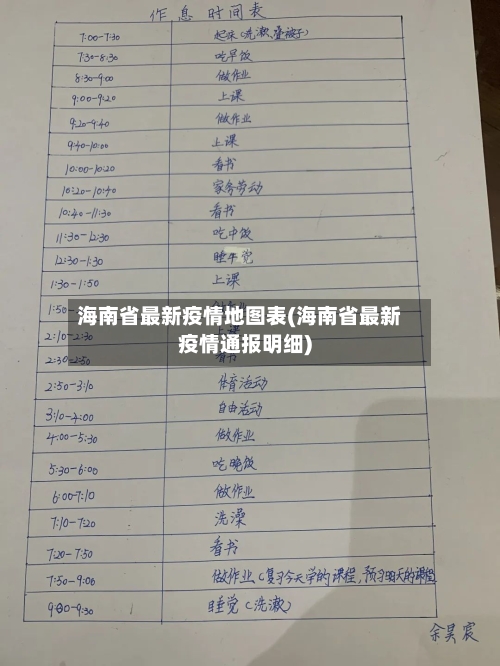 作息时间表
7:00-7:30 起床(洗漱,叠被子)
7:30-8:30 吃早饭
8:30-9:00 做作业
9:00-9:20 上课
9:20-9:40 做作业
9:40-10:00 上课
10:00-10:20 看书
10:20-10:40 家务劳动
10:40-11:30 看书
11:30-12:30 吃中饭
12:30-1:30 睡午觉
1:30-1:50 上课
1:50-
海南省最新疫情地图表(海南省最新
2:10-2:30 上课
疫情通报明细)
2:30-2:50 看书
2:50-3:10 体育活动
3:10-4:00 自由活动
4:00-5:30 做作业
5:30-6:00 吃晚饭
6:00-7:10 做作业
7:10-7:20 洗澡
7:20-7:50 看书
7:50-9:00 做作业(复习今天学的课程,预习明天的课程
9:00-9:30 睡觉(洗漱)
余昊宸